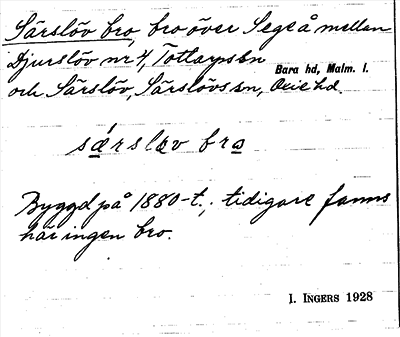 Särslöv bro, bro över Sege å mellan
Djurslöv nr 4, Tottarpssn Bara hd, Malm. l.
och Särslöv, Särslövs sn, Oxie hd.
særslöv bro
Byggd på 1880-t.; tidigare fanns
här ingen bro.
I. INGERS 1928